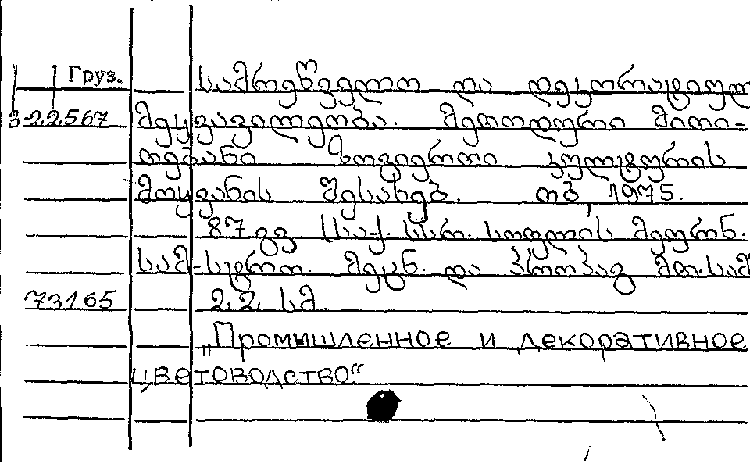 Груз.
სამრეწველო და დეკორატიულ
322567 მეყვავილეობა. მეთოდური მითი-
თებანი ზოგიერთი კულტურის
მოყვანის შესახებ. თბ, 1975.
87 გვ (საქ. სსრ. სოფლის მეურნ.
სამ-სტრო. მეცნ. და პროპაგ მთ. სამ
73165 22 სმ
„Промышленное и декоративное
цветоводство"